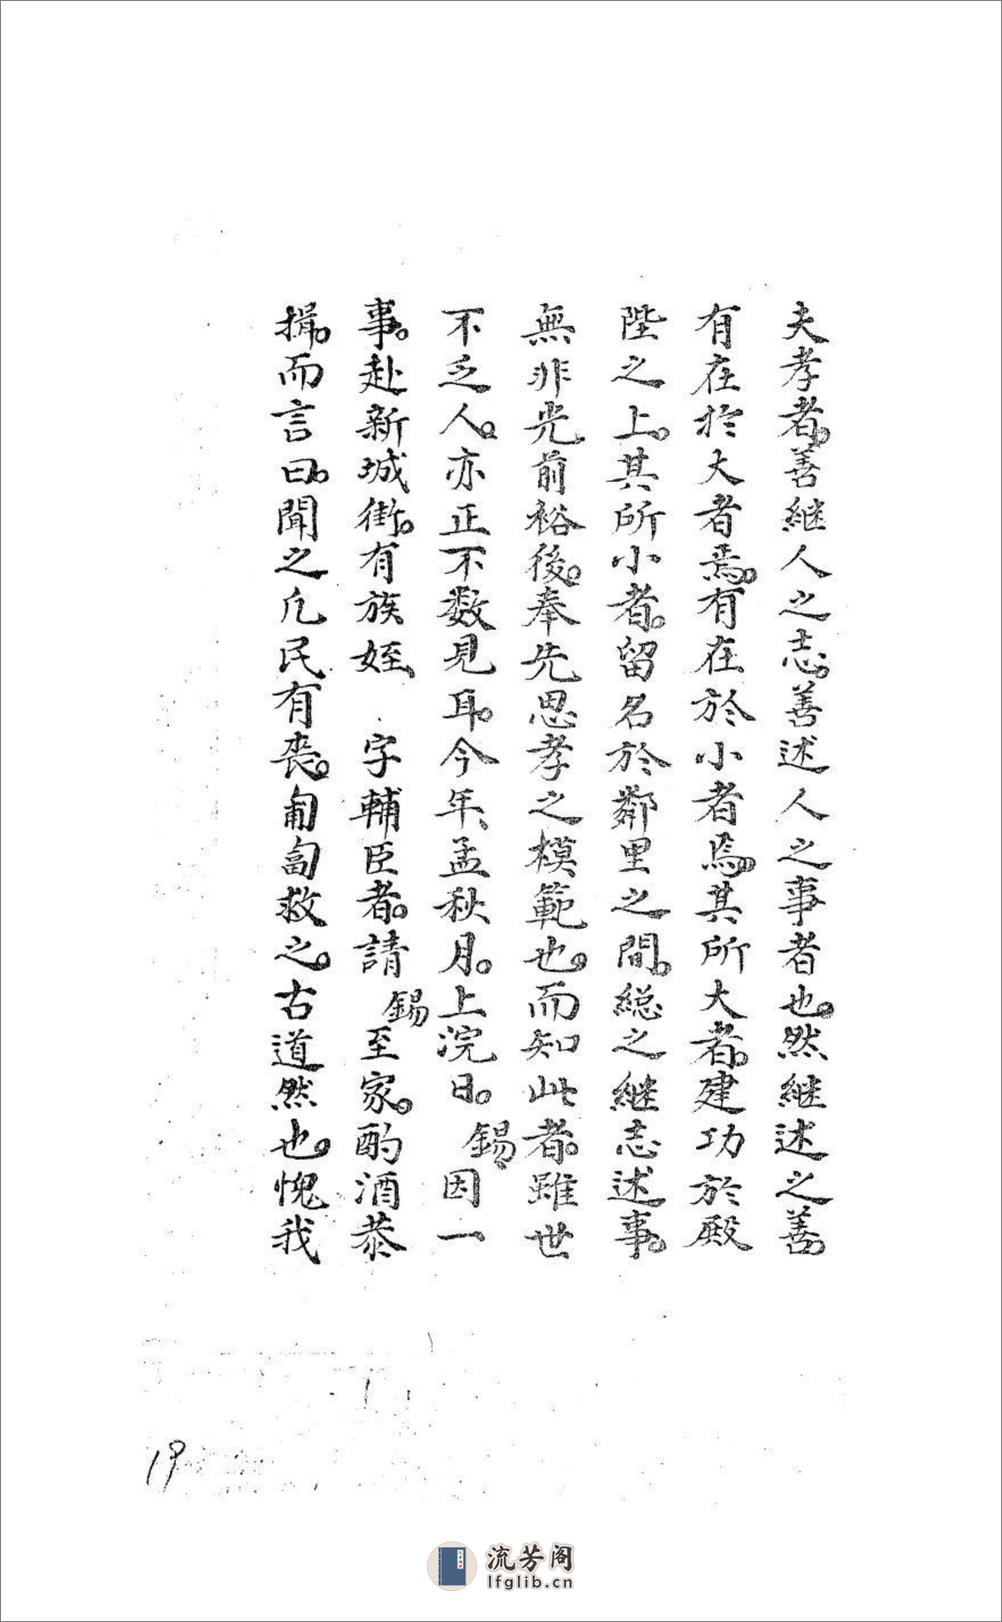 夫孝者。善継人之志。善述人之事者也。然継述之善。
有在扵大者焉。有在於小者焉。其所大者。建功於殿
陛之上。其所小者。留名於鄰里之間。総之継志述事。
無非光前裕後。奉先思孝之模範也。而知此者。雖世
不乏人。亦正不数見耳。今年、孟秋月。上浣日。錫、因一
事。赴新城街。有族姪、 字輔臣者。請錫至家。酌酒恭
揖。而言曰。聞之凢民有喪。匍匐救之。古道然也。愧我
19
流芳阁
lfglib.cn